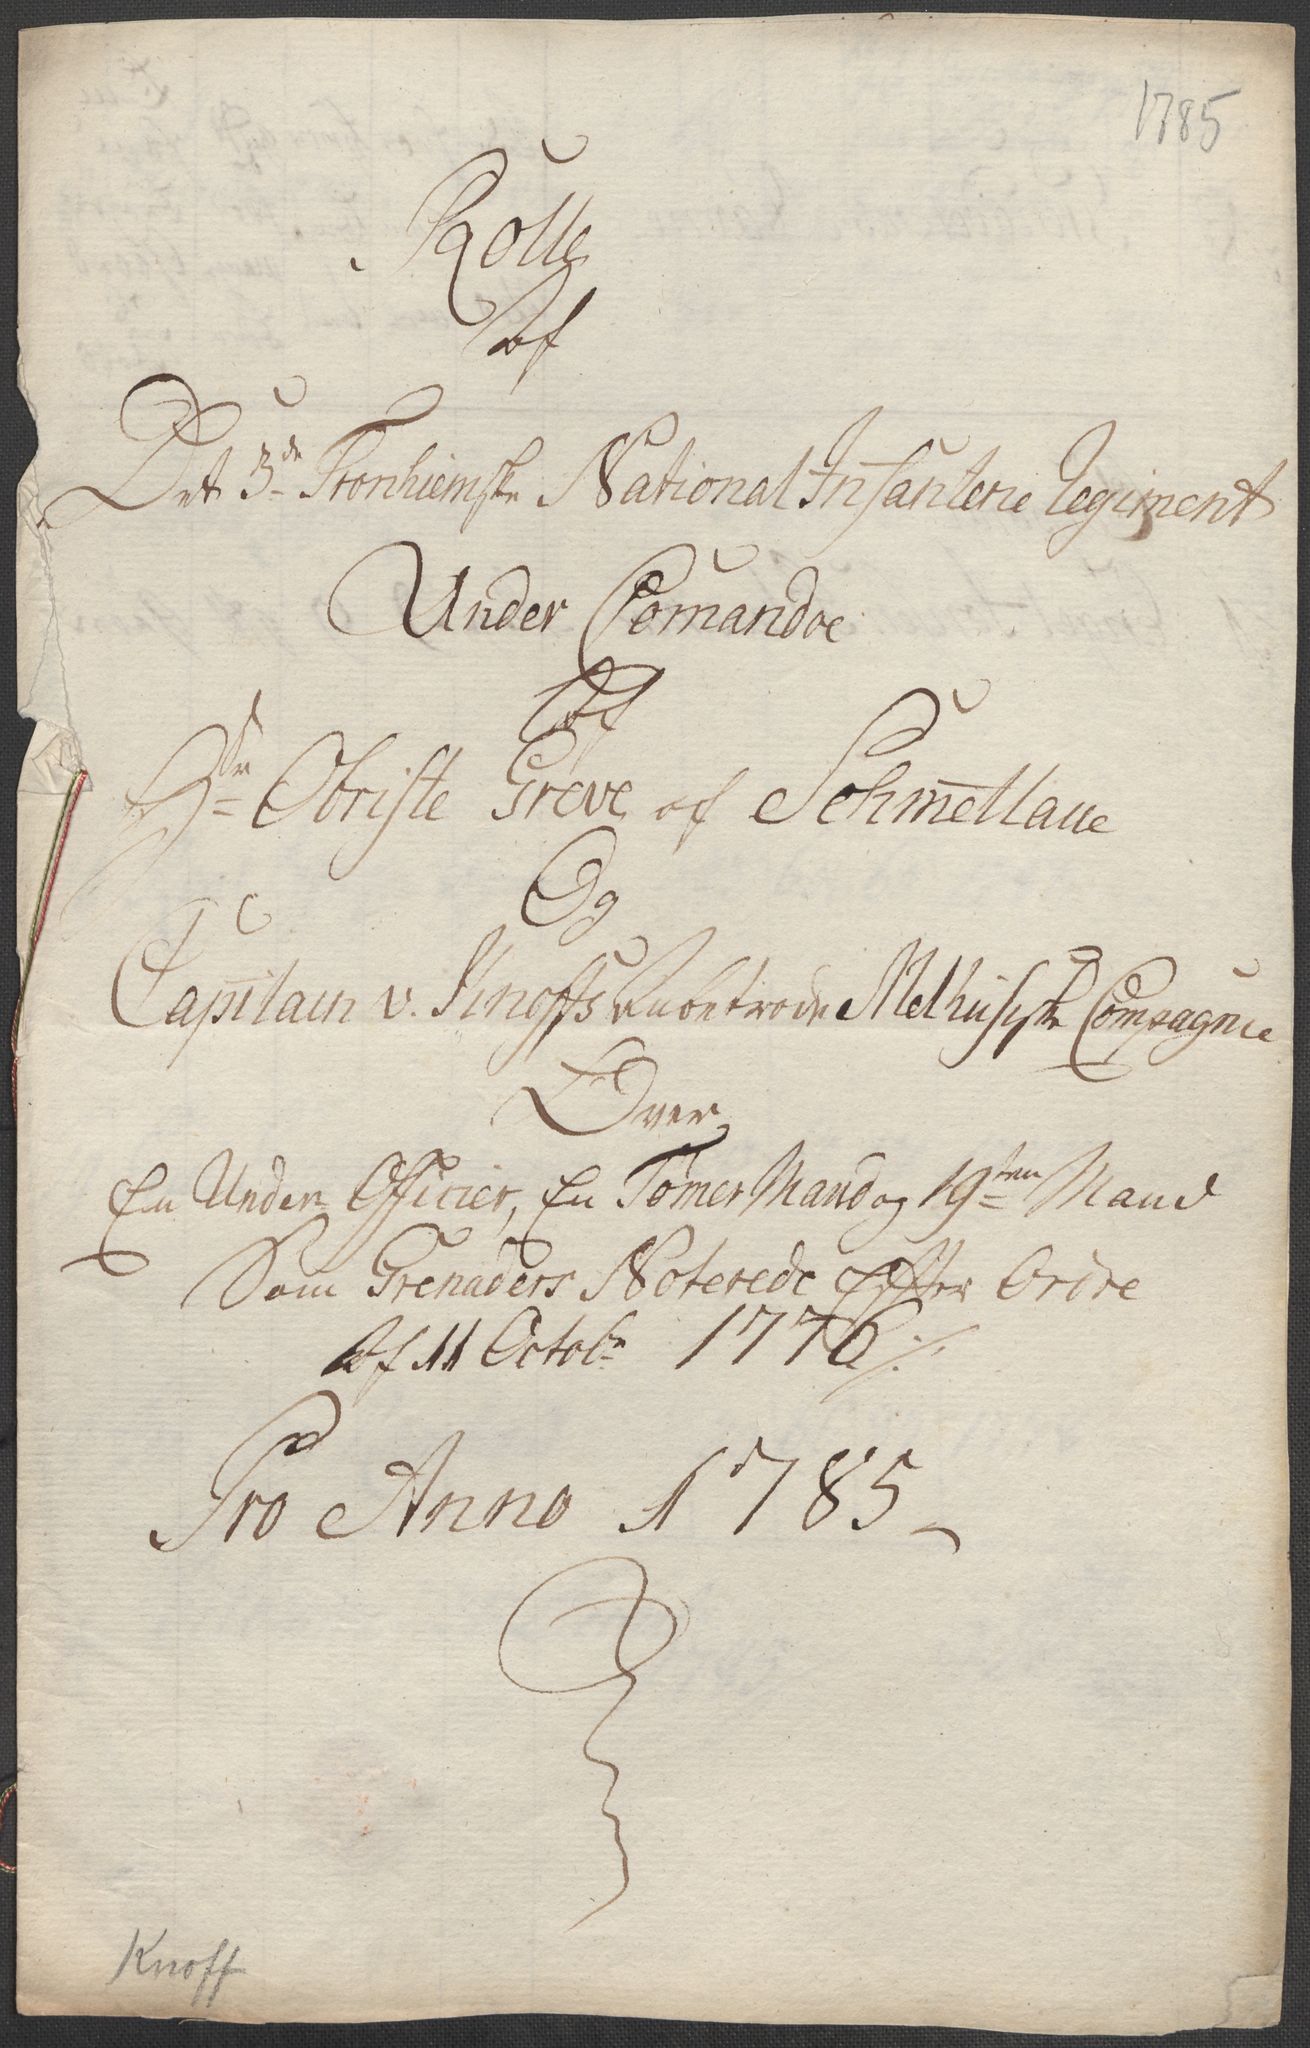 1785
Rolle
Af
Det 3de Tronhiemske National Infanterie Regiment
Under Comandoe
Af
Hr Obriste Greve af Schmettaue
Og
Capitain v. Knoffs Anbetroede Melhusiske Compagnie
Over
En Under Officier, En Tømer Mand og 19ten Mand
Som Grenaders Noterede Effter Ordre
Af 11 Octobr 1776 ./.
Pro Anno 1785
Knoff